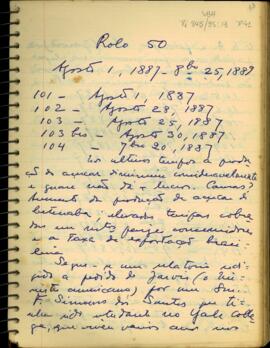 Rolo 50
Agosto 1, 1887 - 8bro 25, 1888
101 - Agosto 1, 1887
102 - Agosto 23, 1887
103 - Agosto 25, 1887
103 bis - Agosto 30, 1887
104 - 7bro 20, 1887
Os ultimos tempos a produ
ção de açucar diminuiu consideravelmente
e quase não dá + lucro. Causas?
Aumento da produção de açucar de
beterraba; elevadas tarifas cobra
das em
e a taxa de exportação brasi
leira
Segue-se um relatorio redi
gido a pedido de Jarvis (o Mi
nistro americano) por um Snr
F. Simmons dos Santos que ti
nha sido estudante no Yale Colle
ge, que viveu varios anos nos